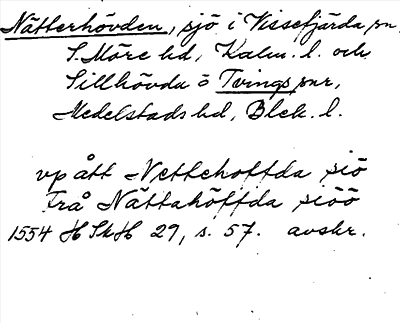 Nätterhövden, sjö i Vissefjärda sn,
S. Möre hd, Kalm. l. och
Sillhövda o Tvings snr,
Medelstads hd, Blek. l.
vp ått Nettehoffda siö
Frå Nättahöffda siöö
1554 HSkH 29, s. 57. avskr.